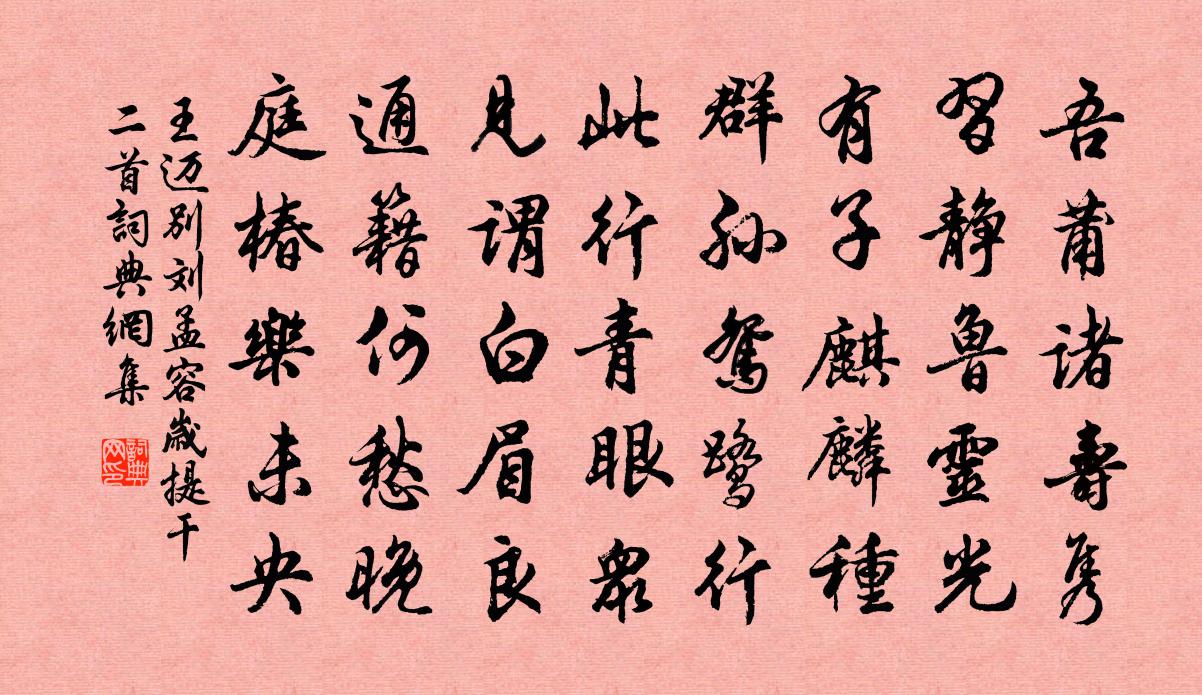 吾莆诸壽隽
習静魯靈光
有子麒麟種
群孙鴛鹭行
此行青眼衆
見谓白眉良
通籍何愁晚
庭椿樂未央
王迈别刘孟容歲提干
二首詞典網集
詞典网印